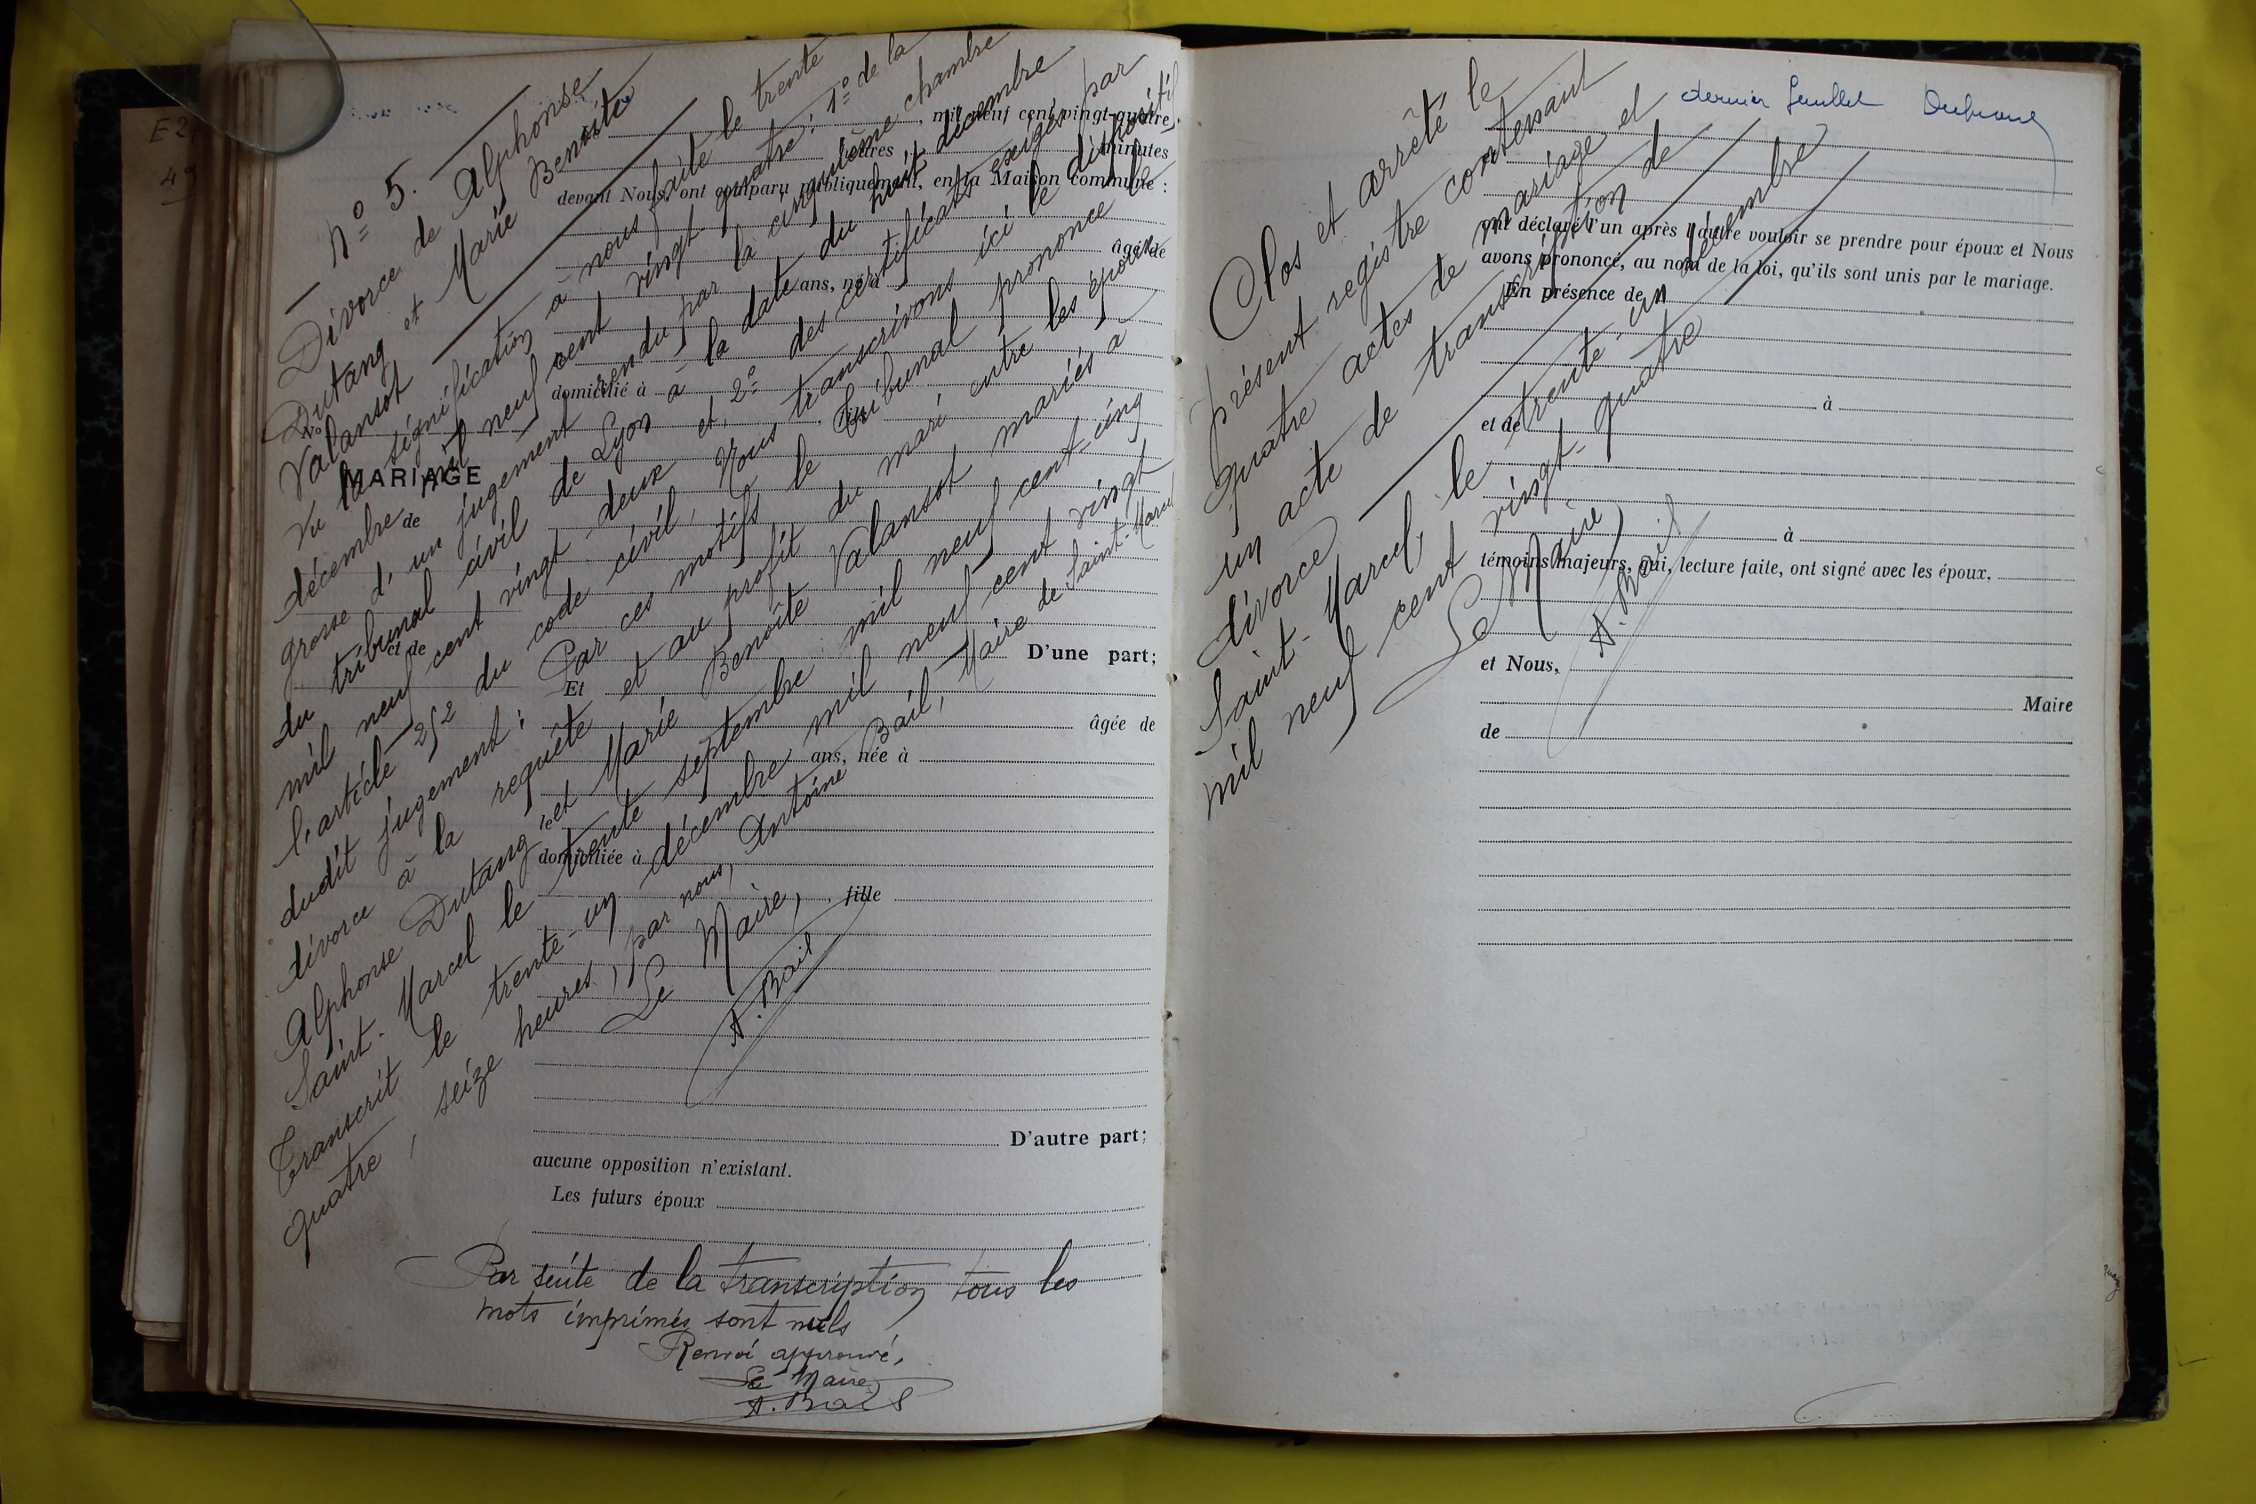 N° 5.
Divorce de Alphonse
Dutang et Marie Benoîte
Valansot
Vu la signification à nous faite le trente
décembre mil neuf cent vingt quatre : 1° de la
grosse d'un jugement rendu par la cinquième chambre
du tribunal civil de Lyon à la date du huit décembre
mil neuf cent vingt deux et, 2° des certificats exigés par
l'article 252 du code civil, Nous transcrivons ici le dispositif
dudit jugement : Par ces motifs le Tribunal prononce le
divorce à la requête et au profit du mari entre les époux
Alphonse Dutang et Marie Benoîte Valansot mariés à
Saint-Marcel le trente septembre mil neuf cent-cinq
Transcrit le trente-un décembre mil neuf cent vingt
quatre, seize heures, par nous, Antoine Bail, Maire de Saint-Marcel
Le Maire,
A. Bail
No
MARIAGE
de
et de
, mil neuf cent vingt-quatre,
heures minutes
devant Nous, ont comparu publiquement, en la Maison commune :
âgé de
ans, né à
domicilié à
fils
D'une part;
Et
âgée de
ans, née à
domiciliée à
, fille
D'autre part;
aucune opposition n'existant.
Les futurs époux
Par suite de la transcription tous les
mots imprimés sont nuls
Renvoi approuvé,
Le Maire
A. Bail
dernier feuillet
Clos et arrêté le
présent registre contenant
quatre actes de mariage et
un acte de transcription de
divorce
Saint-Marcel, le trente-un décembre
mil neuf cent vingt-quatre
Le Maire,
A. Bail
ont déclaré l'un après l'autre vouloir se prendre pour époux et Nous
avons prononcé, au nom de la loi, qu'ils sont unis par le mariage.
En présence de
à
et de
à
témoins majeurs, qui, lecture faite, ont signé avec les époux,
et Nous,
Maire
de